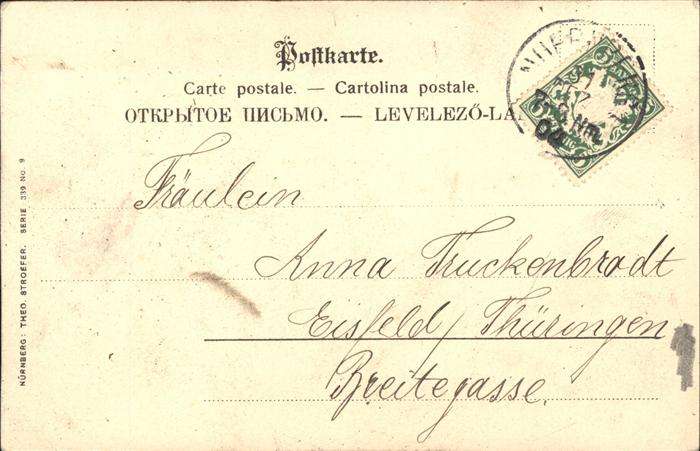 Postkarte.
Carte postale. — Cartolina postale.
ОТКРЫТОЕ ПИСЬМО. — LEVELEZŐ-LA
Fräulein
Anna Truckenbrodt
Eisfeld / Thüringen
Breitegasse.
NÜRNBERG: THEO. STROEFER. SERIE 339 NO. 9